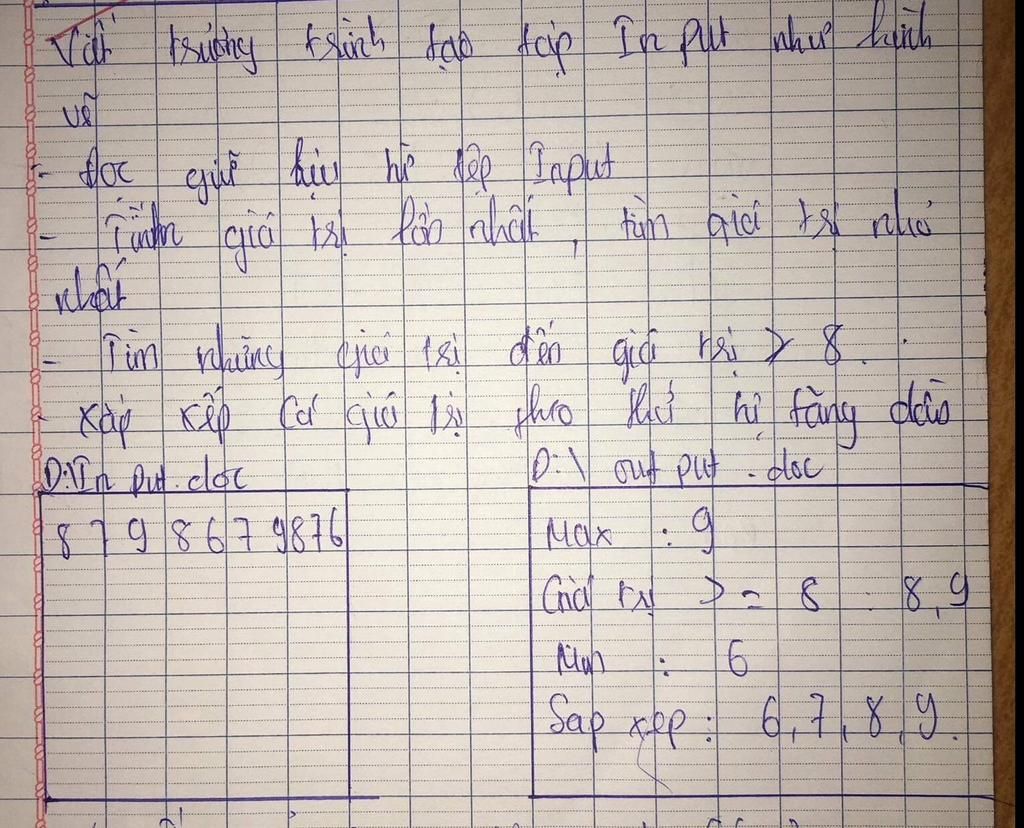 Viết trương trình tạo tệp In put như hình
vẽ
- Đọc giữ liệu từ tệp Input
- Tìm giá trị lớn nhất, tìm giá trị nhỏ
nhất
- Tìm những giá trị đến giá trị > 8.
- xắp xếp cá giá trị theo thứ tự tăng dần
D:\In put.doc
8 7 9 8 6 7 9 8 7 6
D:\ out put.doc
Max : 9
Giá trị > = 8 : 8, 9
Min : 6
Sap xep: 6, 7, 8, 9.